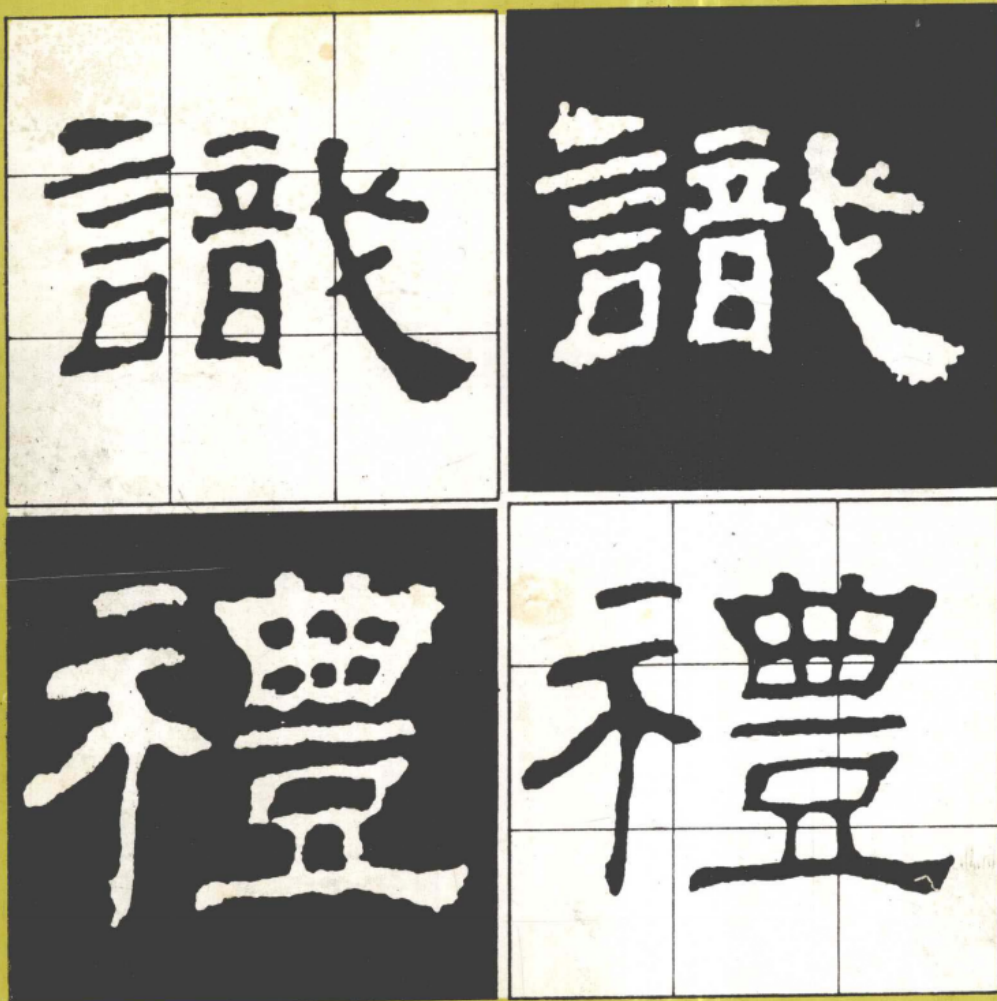 識 識
禮 禮